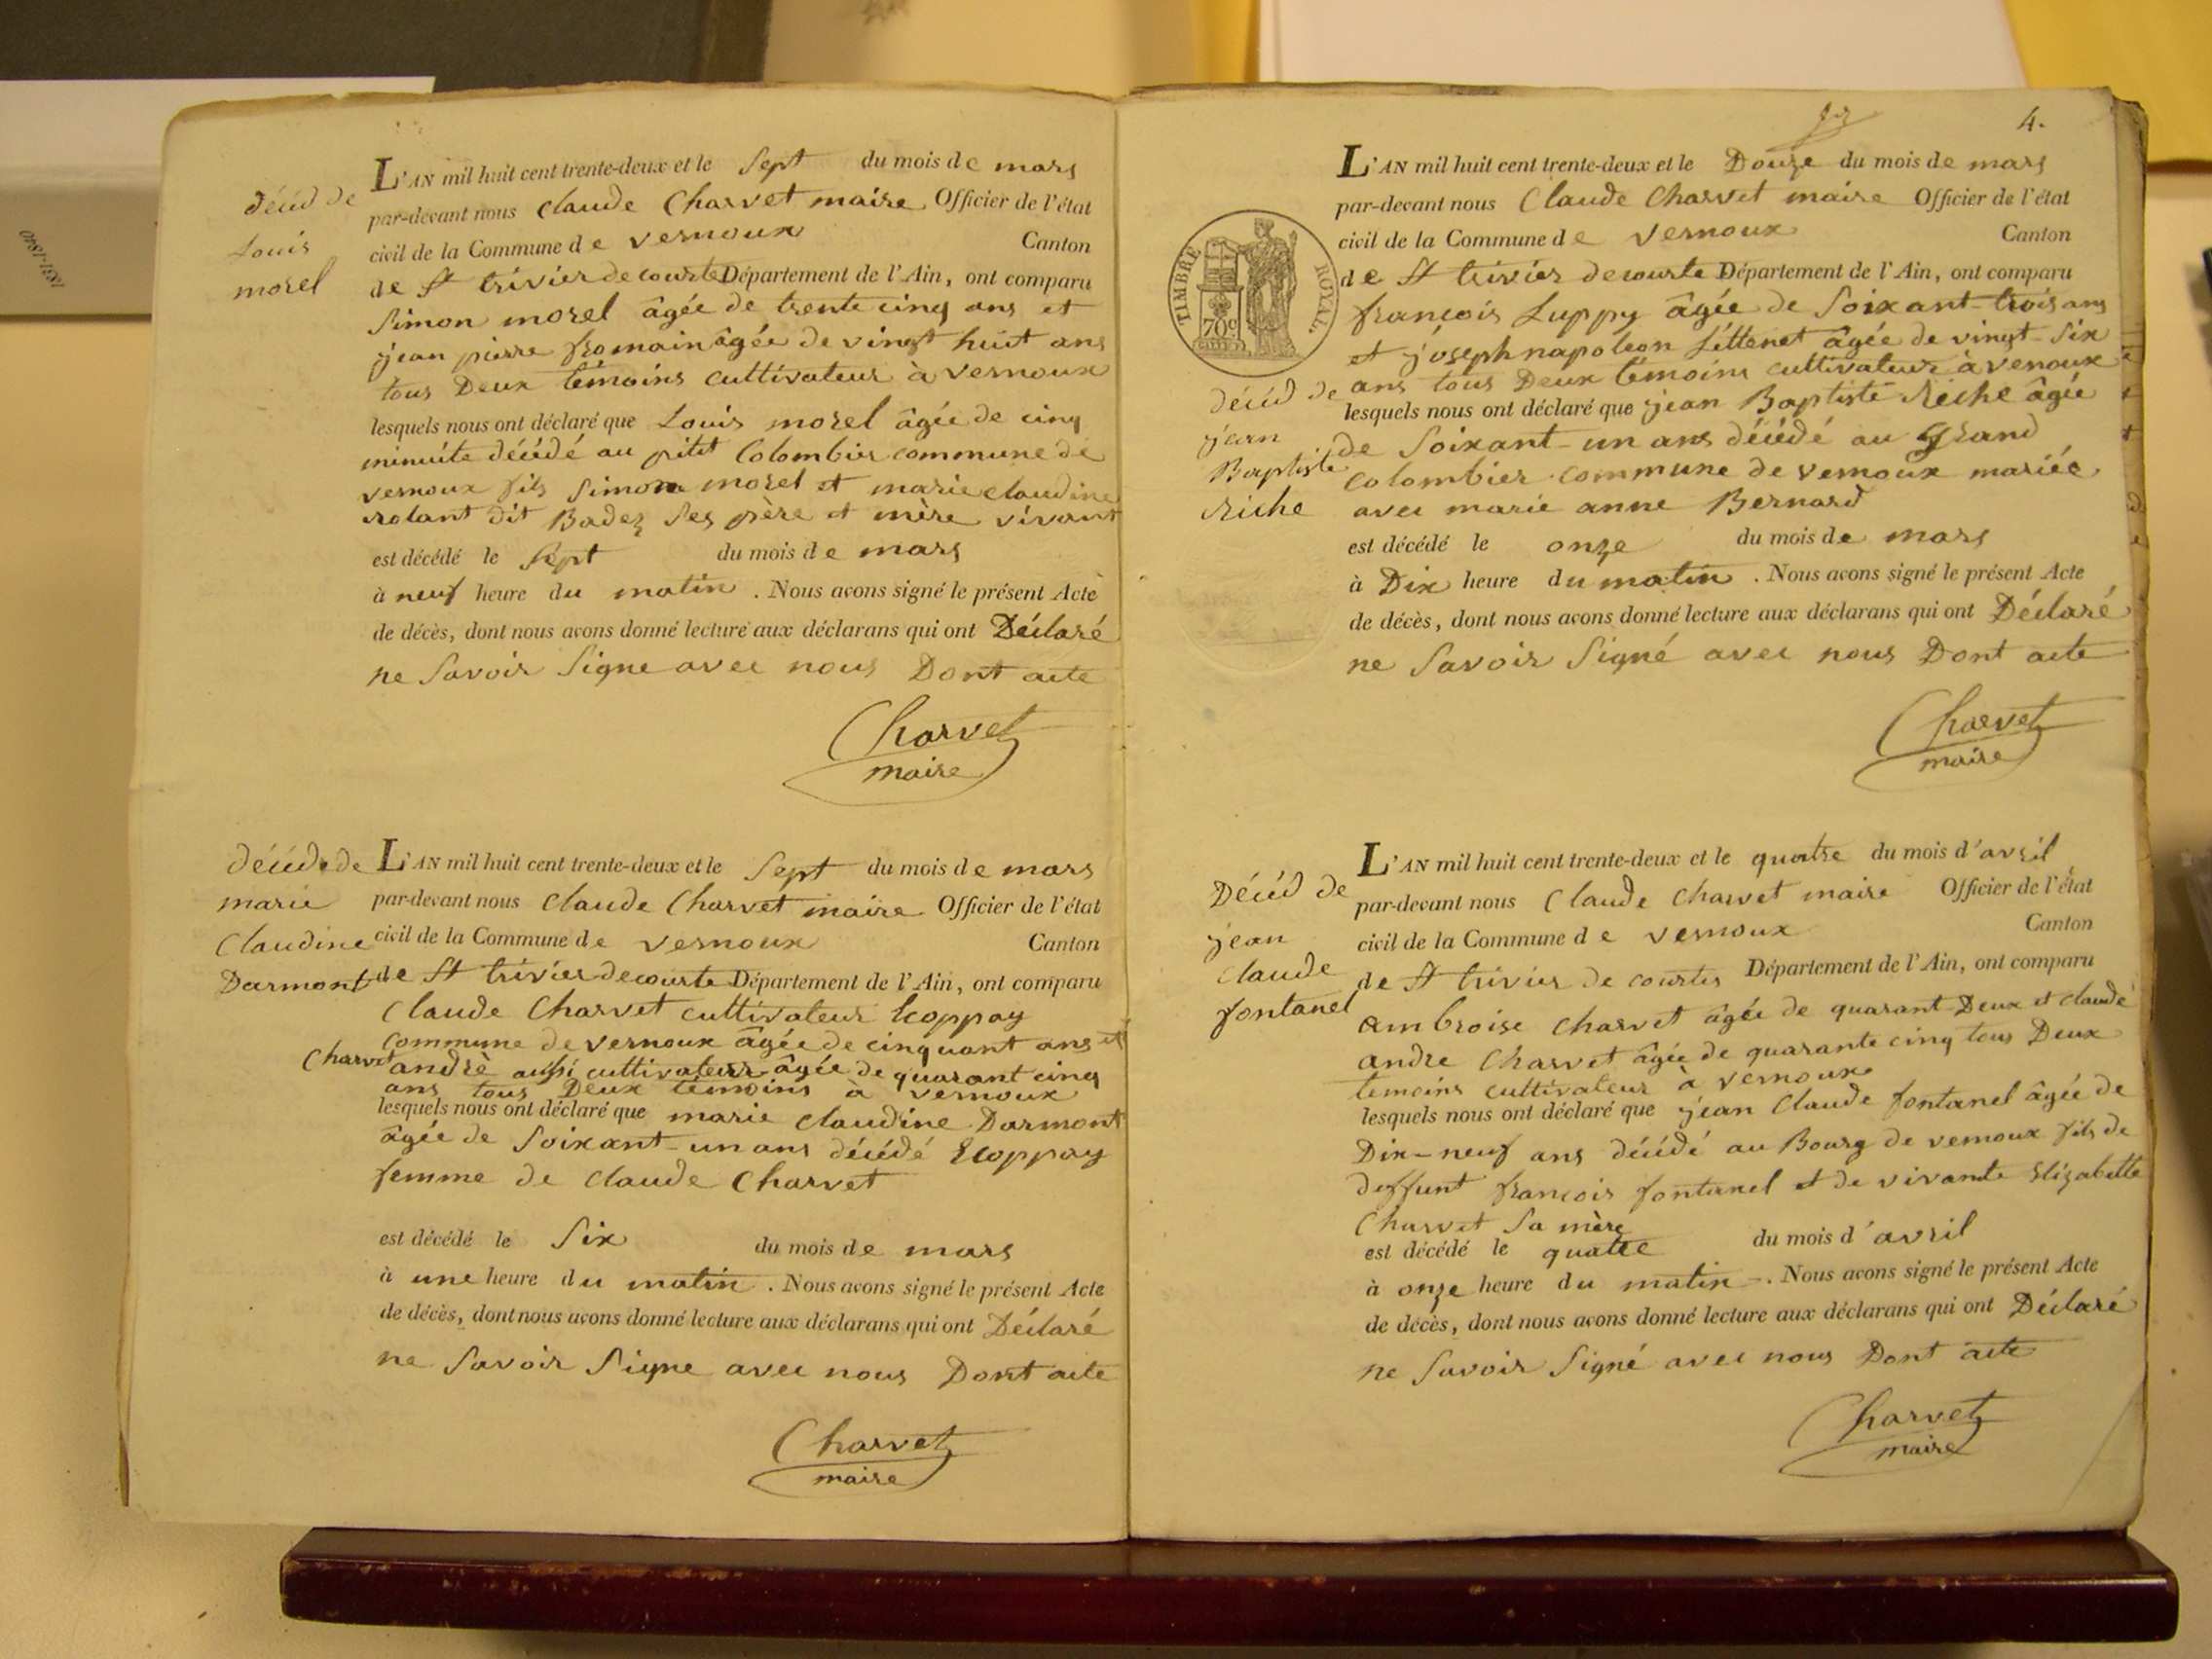 décéd de
Louis
morel
L'AN mil huit cent trente-deux et le Sept du mois de mars
par-devant nous Claude Charvet maire Officier de l'état
civil de la Commune de vernoux Canton
de St trivier de courte Département de l'Ain, ont comparu
Simon morel âgée de trente cinq ans et
jean pierre fromain âgée de vingt huit ans
tous Deux témoins cultivateur à vernoux
lesquels nous ont déclaré que Louis morel âgée de cinq
minuite décédé au pitit Colombier commune de
vernoux fils Simon morel et marie claudine
rolant dit Badez Ses père et mère vivant
est décédé le Sept du mois de mars
à neuf heure du matin . Nous avons signé le présent Acte
de décès, dont nous avons donné lecture aux déclarans qui ont Déclaré
ne Savoir Signe avec nous Dont acte
Charvet
maire
décédede
marie
Claudine
Darmont
L'AN mil huit cent trente-deux et le Sept du mois de mars
par-devant nous Claude Charvet maire Officier de l'état
civil de la Commune de vernoux Canton
de St trivier de courte Département de l'Ain, ont comparu
Claude Charvet cultivateur
Commune de vernoux âgée de cinquant ans et
Charvet andrè aussi cultivateur âgée de quarant cinq
ans tous Deux témoins à vernoux
lesquels nous ont déclaré que marie claudine Darmont
âgée de Soixant-un ans décédé Ecoppay
femme de Claude Charvet
est décédé le Six du mois de mars
à une heure du matin . Nous avons signé le présent Acte
de décès, dont nous avons donné lecture aux déclarans qui ont Déclaré
ne Savoir Signe avec nous Dont acte
Charvet
maire
4.
TIMBRE ROYAL.
70c
décéd de
jean
Baptiste
Riche
L'AN mil huit cent trente-deux et le Douze du mois de mars
par-devant nous Claude Charvet maire Officier de l'état
civil de la Commune de vernoux Canton
de St trivier de courte Département de l'Ain, ont comparu
françois Luppy âgée de Soixant-trois ans
et joseph napoleon âgée de vingt-Six
ans tous Deux témoins cultivateur à venoux
lesquels nous ont déclaré que jean Baptiste Riche âgée
de Soixant-un ans décédé au grand
Colombier commune de vernoux mariée
avec marie anne Bernard
est décédé le onze du mois de mars
à Dix heure du matin . Nous avons signé le présent Acte
de décès, dont nous avons donné lecture aux déclarans qui ont Déclaré
ne Savoir Signé avec nous Dont acte
Charvet
maire
Décéd de
jean
claude
fontanel
L'AN mil huit cent trente-deux et le quatre du mois d'avril
par-devant nous Claude Charvet maire Officier de l'état
civil de la Commune de vernoux Canton
de St trivier de courtes Département de l'Ain, ont comparu
ambroise Charvet âgée de quarant Deux et claude
andre Charvet âgée de quarante cinq tous Deux
temoins cultivateur à vernoux
lesquels nous ont déclaré que jean Claude fontanel âgée de
Dix-neuf ans décédé au Bourg de vernoux fils de
deffunt françois fontanel et de vivante Elizabette
Charvet Sa mère
est décédé le quatre du mois d'avril
à onze heure du matin . Nous avons signé le présent Acte
de décès, dont nous avons donné lecture aux déclarans qui ont Déclaré
ne Savoir Signé avec nous Dont acte
Charvet
maire